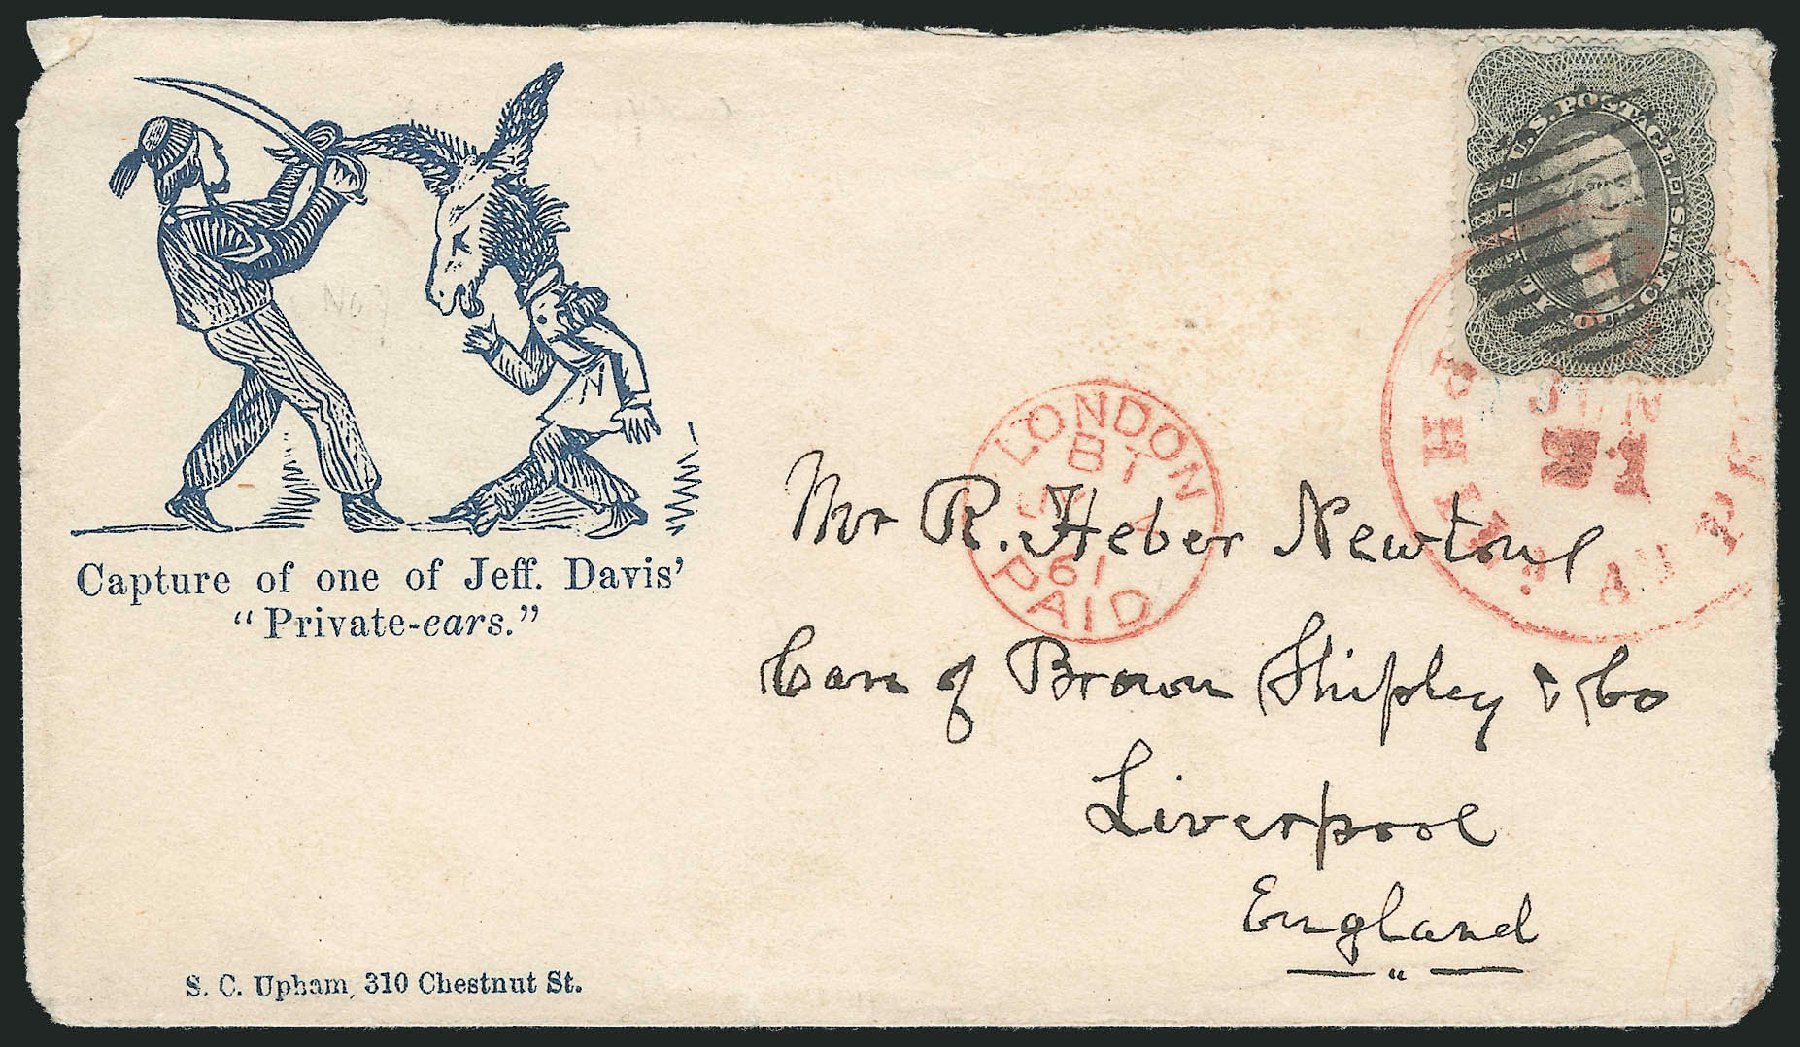 Capture of one of Jeff. Davis'
"Private-ears."
S. C. Upham, 310 Chestnut St.
U.S. POSTAGE
LONDON
61
PAID
PHILA
AM. PKT
JUN
21
Mr R. Heber Newton
Care of Brown Shipley & Co
Liverpool
England